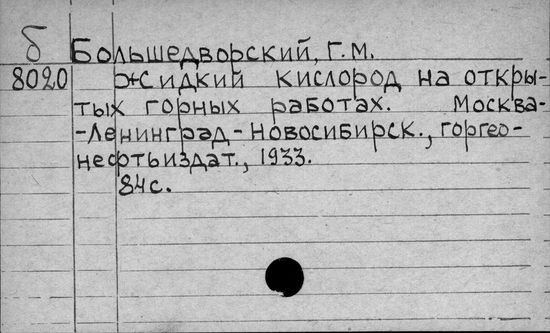 б Большедворский, Г.М.
8020 Жидкий кислород на откры-
тых горных работах. Москва-
-Ленинград-Новосибирск., горгео-
нефтьиздат., 1933.
84с.